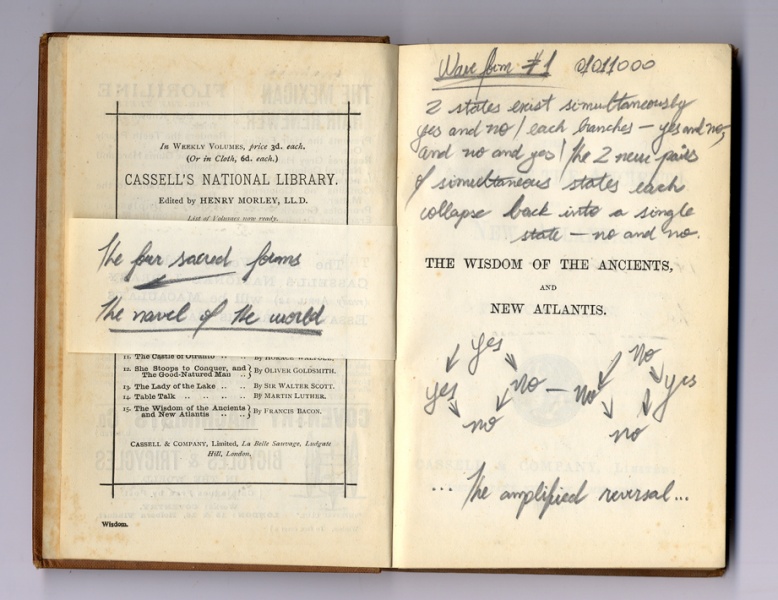 In Weekly Volumes, price 3d. each.
(Or in Cloth, 6d. each.)
CASSELL'S NATIONAL LIBRARY.
Edited by HENRY MORLEY, LL.D.
List of Volumes now ready.
The four sacred forms
The navel of the world
11. The Castle of Otranto .. .. By Horace Walpole.
12. She Stoops to Conquer, and The Good-Natured Man .. } By Oliver Goldsmith.
13. The Lady of the Lake .. .. By Sir Walter Scott.
14. Table Talk .. .. .. .. By Martin Luther.
15. The Wisdom of the Ancients and New Atlantis .. .. } By Francis Bacon.
CASSELL & COMPANY, Limited, La Belle Sauvage, Ludgate
Hill, London.
Wisdom.
Wave form #1 01011000
2 states exist simultaneously
yes and no / each branches – yes and no,
and no and yes / the 2 new pairs
of simultaneous states each
collapse back into a single
state – no and no.
THE WISDOM OF THE ANCIENTS,
AND
NEW ATLANTIS.
yes no
yes no – no yes
no no
... The amplified reversal...